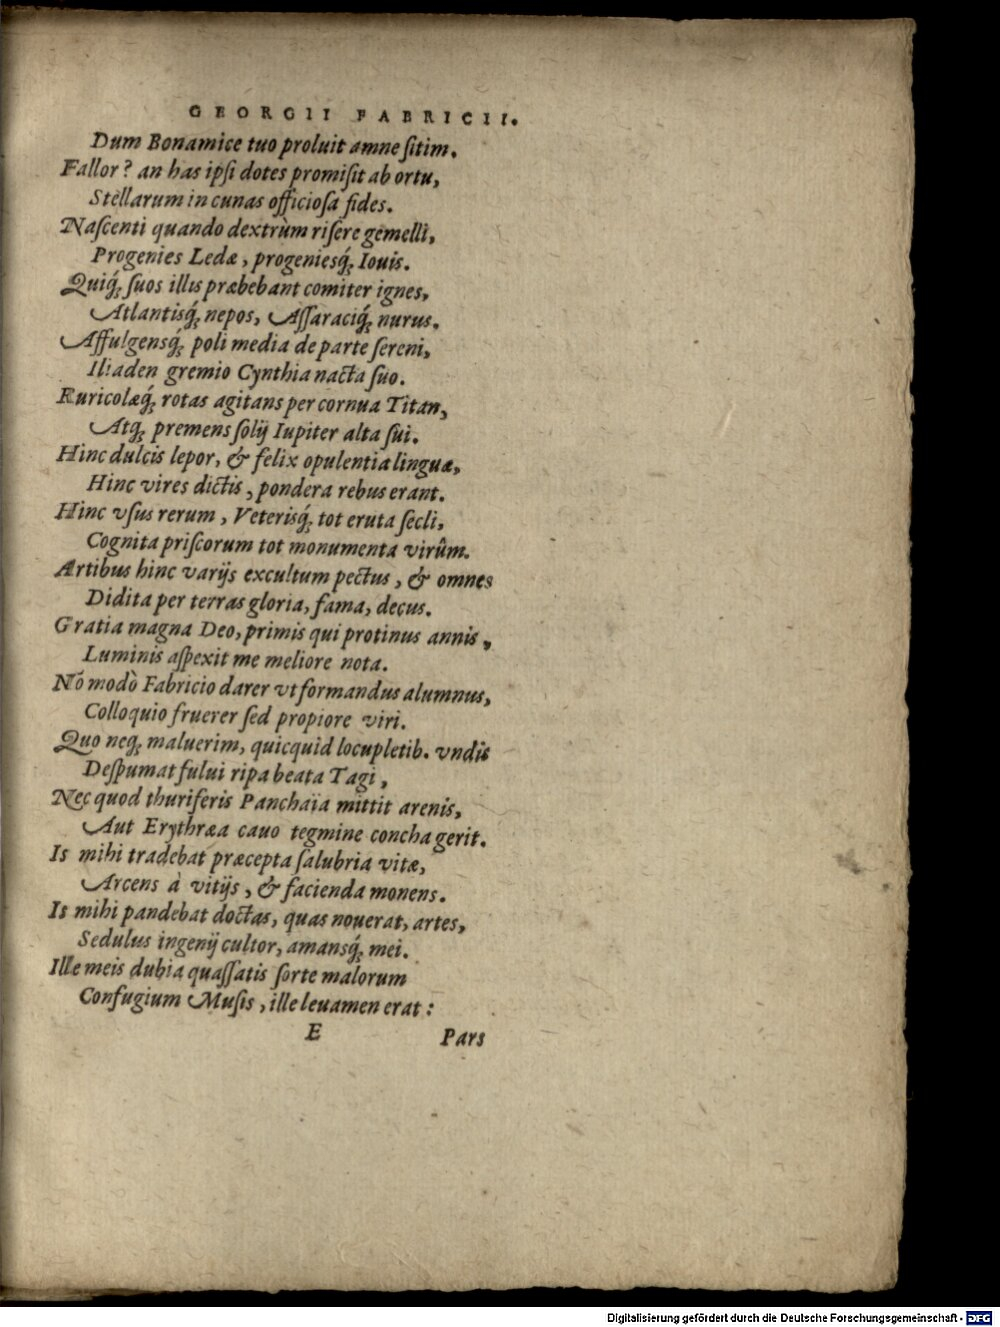 GEORGII FABRICII.
Dum Bonamice tuo proluit amne ſitim.
Fallor? an has ipſi dotes promiſit ab ortu,
Stellarum in cunas officioſa fides.
Naſcenti quando dextrùm riſere gemelli,
Progenies Ledæ, progeniesq́; Iouis.
Quiq́; ſuos illis præbebant comiter ignes,
Atlantisq́; nepos, Aſſaraciq́; nurus.
Affulgensq́; poli media de parte ſereni,
Iliaden gremio Cynthia nacta ſuo.
Ruricolæq́; rotas agitans per cornua Titan,
Atq; premens ſolij Iupiter alta ſui.
Hinc dulcis lepor, & felix opulentia linguæ,
Hinc vires dictis, pondera rebus erant.
Hinc vſus rerum, Veterisq́; tot eruta ſecli,
Cognita priſcorum tot monumenta virûm.
Artibus hinc varijs excultum pectus, & omnes
Didita per terras gloria, fama, decus.
Gratia magna Deo, primis qui protinus annis,
Luminis aſpexit me meliore nota.
Nõ modò Fabricio darer vt formandus alumnus,
Colloquio fruerer ſed propiore viri.
Quo neq; maluerim, quicquid locupletib. vndis
Deſpumat fului ripa beata Tagi,
Nec quod thuriferis Panchaïa mittit arenis,
Aut Erythræa cauo tegmine concha gerit.
Is mihi tradebat præcepta ſalubria vitæ,
Arcens à vitijs, & facienda monens.
Is mihi pandebat doctas, quas nouerat, artes,
Sedulus ingenij cultor, amansq́; mei.
Ille meis dubia quaſſatis ſorte malorum
Confugium Muſis, ille leuamen erat:
E Pars
Digitalisierung gefördert durch die Deutsche Forschungsgemeinschaft - DFG